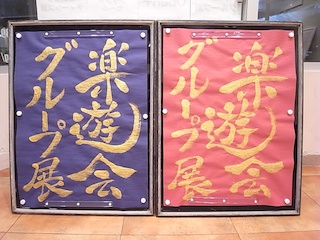 楽遊会
グループ展
楽遊会
グループ展